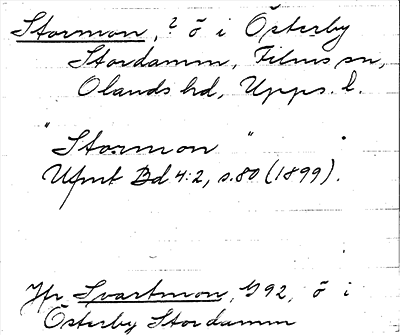 Stormon, ? ö i Österby
Stordamm, Films sn,
Olands hd, Upps. l.
"Stormon"
Ufmt Bd 4:2, s. 80 (1899).
Jfr Svartmon, G92, ö i
Österby Stordamm